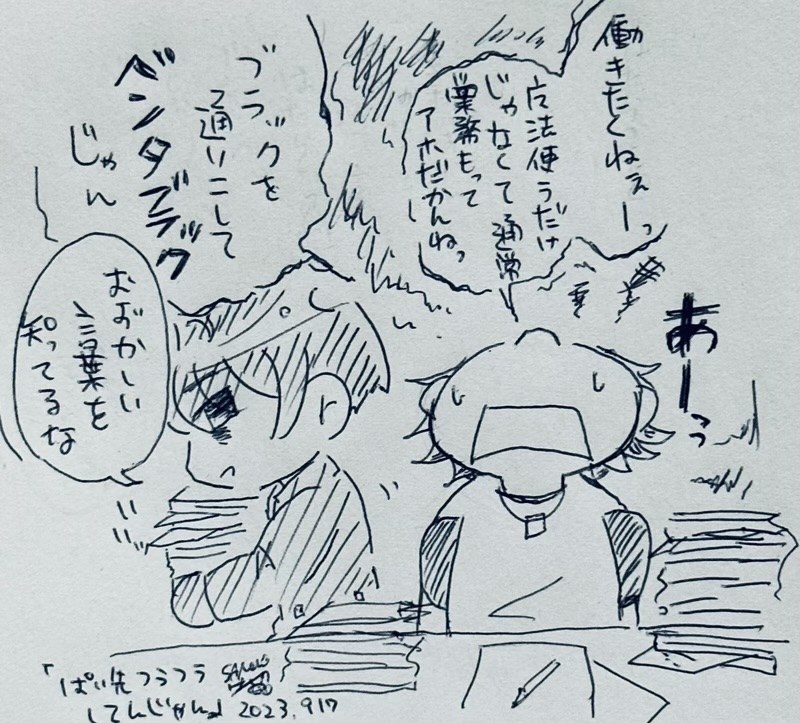 働きたくねぇーっ
方法使うだけ
じゃなくて通常
業務もって
アホだかんねっ
ブラックを
通りこして
ベンタブラック
じゃん
おおかしい
言葉を
知ってるな
あーっっ
「ぱい先フラフラ
してんじゃん」
2023.9.17